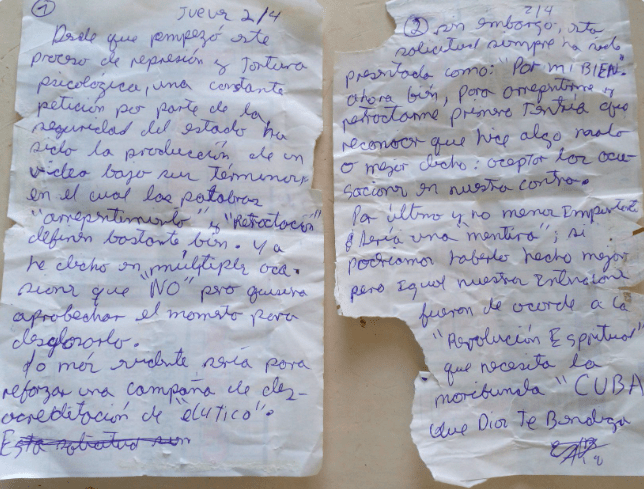 1
Jueves 2/4
Desde que empezó este
proceso de represión y tortura
psicológica, una constante
petición por parte de la
seguridad del estado ha
sido la producción de un
video bajo sus terminos
en el cual las palabras
"arrepentimiento" y "Retractación"
definen bastante bien. Ya
he dicho en múltiples oca-
siones que "NO" pero quisiera
aprobechar el momento para
desglosarlo.
Lo más evidente sería para
reforzar una campaña de dez-
acreditación de "el4tico".
Esta solicitud sin
2/4
2 sin embargo, esta
solicitud siempre ha sido
presentada como: "Por mi BIEN"
ahora bien, para arrepentirme y
retractarme primero tendría que
reconocer que hice algo malo
o mejor dicho: aceptar las acu-
saciones en nuestra contra.
Por último y no menor importante
sería una "mentira"; si
podríamos haberlo hecho mejor
pero igual nuestras intenciones
fueron de acorde a la
"Revolución Espiritual"
que necesita la
moribunda "CUBA
Que Dios Te Bendiga